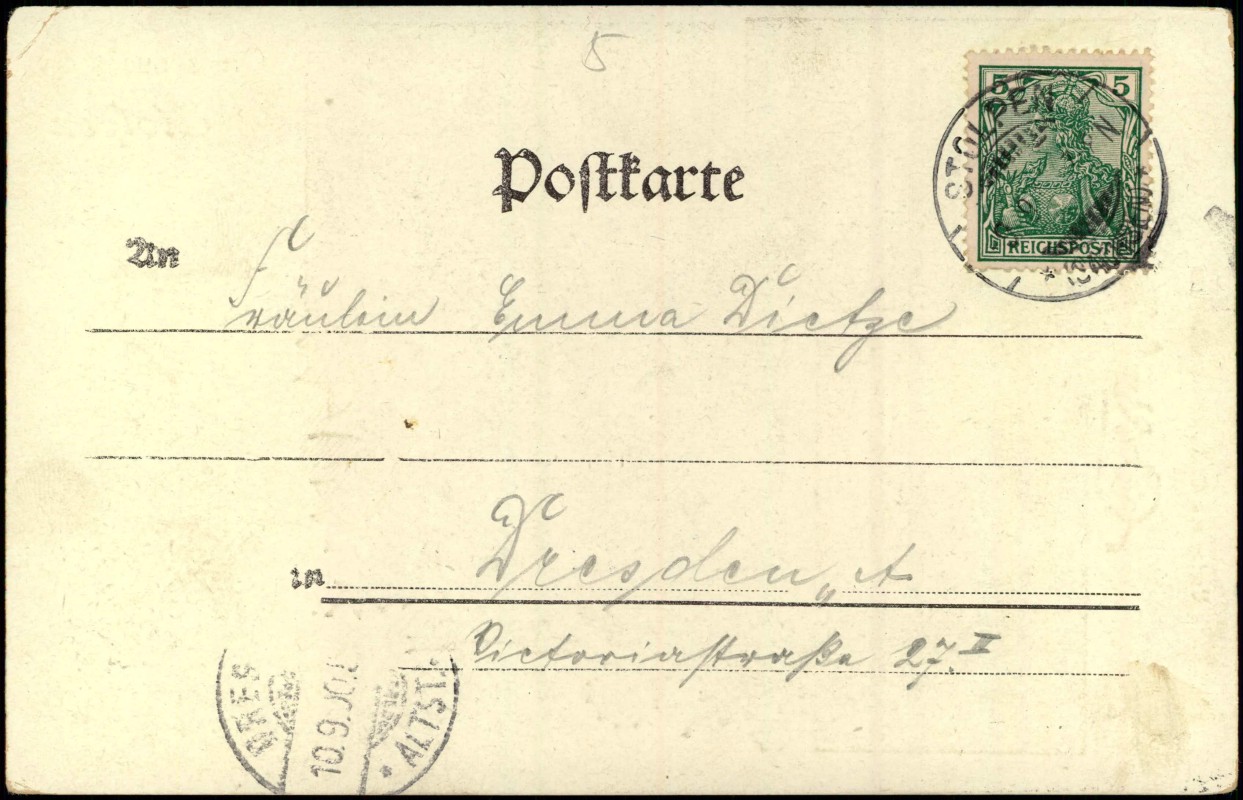 5
5 5
REICHSPOST
STOLPEN
Postkarte
An
Fräulein Emma Dietze
in Dresden „A
Victoriastraße 27. II
DRES
10.9.00.
* ALTST.